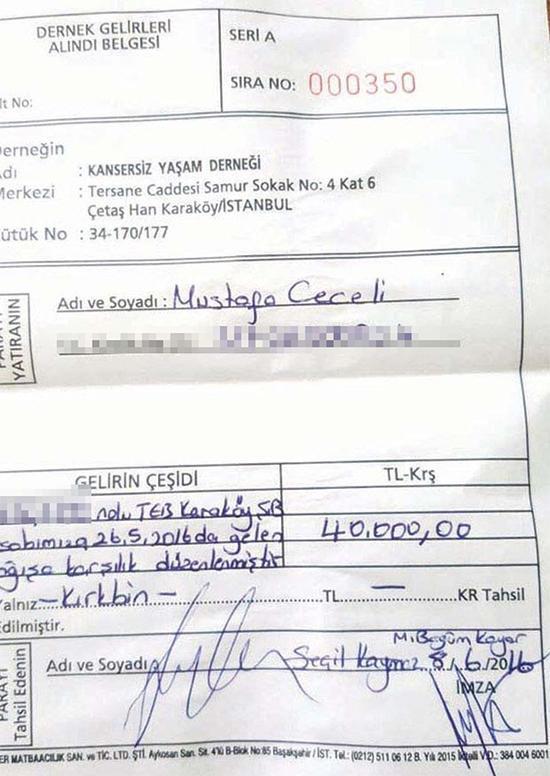 DERNEK GELİRLERİ
ALINDI BELGESİ
SERİ A
SIRA NO: 000350
lt No:
erneğin
dı : KANSERSİZ YAŞAM DERNEĞİ
Merkezi : Tersane Caddesi Samur Sokak No: 4 Kat 6
Çetaş Han Karaköy/İSTANBUL
ütük No : 34-170/177
PARAYI
YATIRANIN
Adı ve Soyadı : Mustafa Ceceli
GELİRİN ÇEŞİDİ
TL-Krş
nolu TEB Karaköy ŞB
sabımıza 26.5.2016 da gelen
40.000,00
ağışa karşılık düzenlenmiştir
Yalnız - Kırkbin - TL — KR Tahsil
Edilmiştir.
PARAYI
Tahsil Edenin
M. Begüm Kayar
Adı ve Soyadı Seçil Kaymaz 8/6/2016
İMZA
ER MATBAACILIK SAN. ve TİC. LTD. ŞTİ. Aykosan San. Sit. 4'lü B-Blok No:85 Başakşehir / İST. Tel.: (0212) 511 06 12 B. Yılı 2015 İkitelli V.D.: 384 004 6001